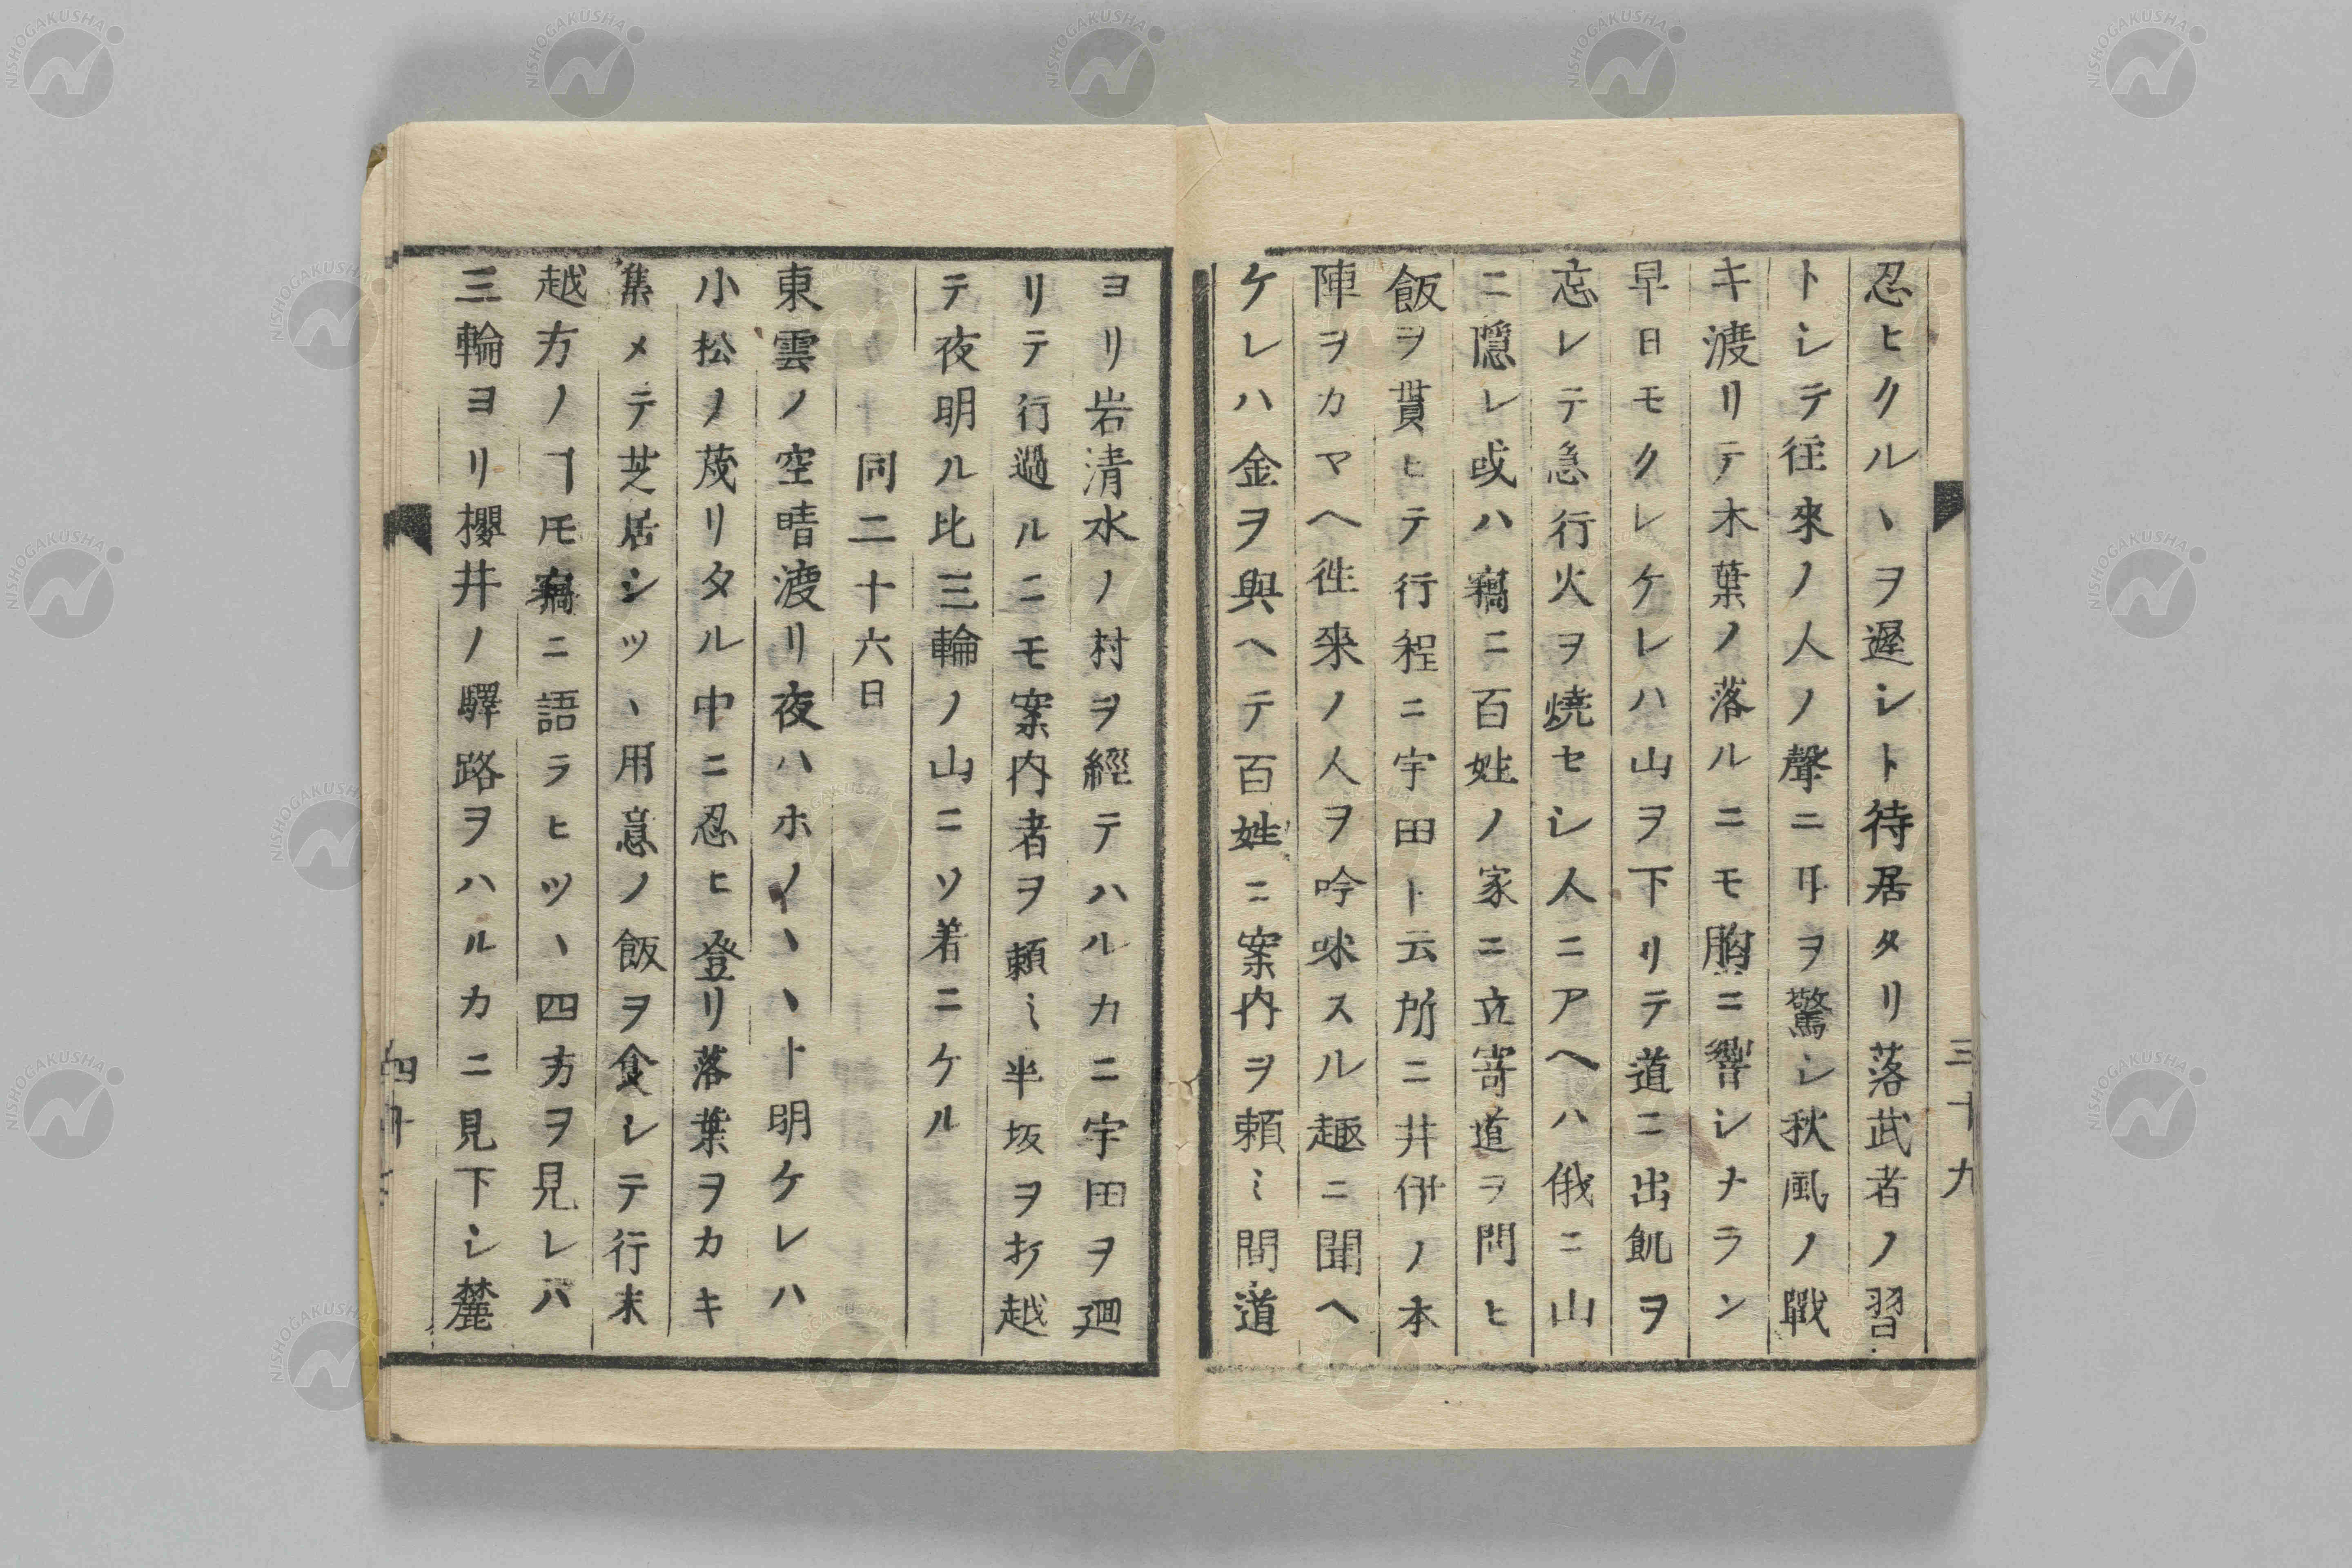 忍ヒクルヽヲ遲シト待居タリ落武者ノ習
トシテ往來ノ人ノ聲ニ耳ヲ驚シ秋風ノ戰
キ渡リテ木葉ノ落ルニモ胸ニ響シナラン
早日モクレケレハ山ヲ下リテ道ニ出飢ヲ
忘レテ急行火ヲ焼セシ人ニアヘハ俄ニ山
ニ隱レ或ハ竊ニ百姓ノ家ニ立寄道ヲ問ヒ
飯ヲ貰ヒテ行程ニ宇田ト云所ニ井伊ノ本
陣ヲカマヘ徃来ノ人ヲ吟味スル趣ニ聞ヘ
ケレハ金ヲ與ヘテ百姓ニ案内ヲ頼ミ間道
三十九
ヨリ岩清水ノ村ヲ經テハルカニ宇田ヲ廻
リテ行過ルニモ案内者ヲ頼ミ半坂ヲ打越
テ夜明ル比三輪ノ山ニソ着ニケル
同二十六日
東雲ノ空晴渡リ夜ハホノ〳〵ト明ケレハ
小松ノ茂リタル中ニ忍ヒ登リ落葉ヲカキ
集メテ芝居シツヽ用意ノ飯ヲ食シテ行末
越方ノヿ𪜈竊ニ語ラヒツヽ四方ヲ見レハ
三輪ヨリ櫻井ノ驛路ヲハルカニ見下シ麓
四十
NISHOGAKUSHA